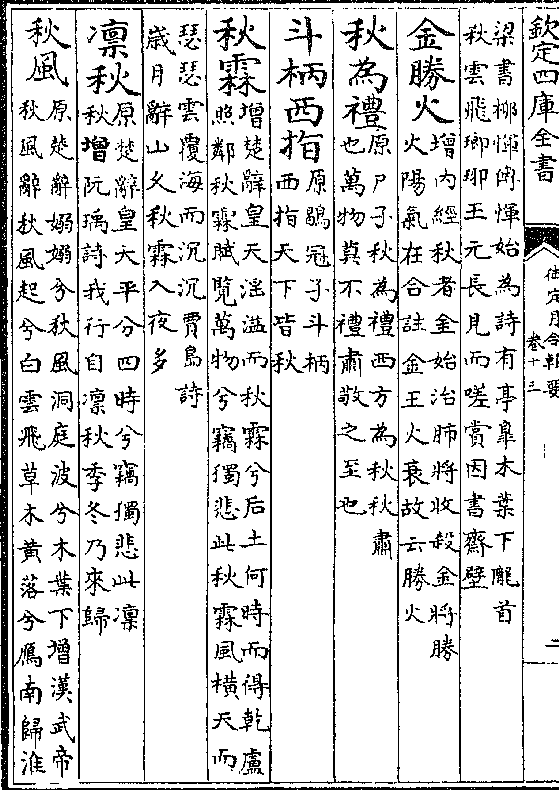 欽定四庫全書
御定月令輯要
卷十三
二
梁書柳惲傳惲始為詩有亭臯木葉下隴首
秋雲飛瑯琊王元長見而嗟賞因書齋壁
金勝火
增內經秋者金始治肺將收殺金將勝
火陽氣在合註金王火衰故云勝火
秋為禮
原尸子秋為禮西方為秋秋肅
也萬物莫不禮肅敬之至也
斗柄西指
原鶡冠子斗柄
西指天下皆秋
秋霖
增楚辭皇天淫溢而秋霖兮后土何時而得乾盧
照鄰秋霖賦覽萬物兮竊獨悲此秋霖風橫天而
瑟瑟雲覆海而沉沉賈島詩
歲月辭山久秋霖入夜多
凛秋
原楚辭皇天平分四時兮竊獨悲此凛
秋增阮瑀詩我行自凛秋季冬乃來歸
秋風
原楚辭嫋嫋兮秋風洞庭波兮木葉下增漢武帝
秋風辭秋風起兮白雲飛草木黃落兮鴈南歸淮